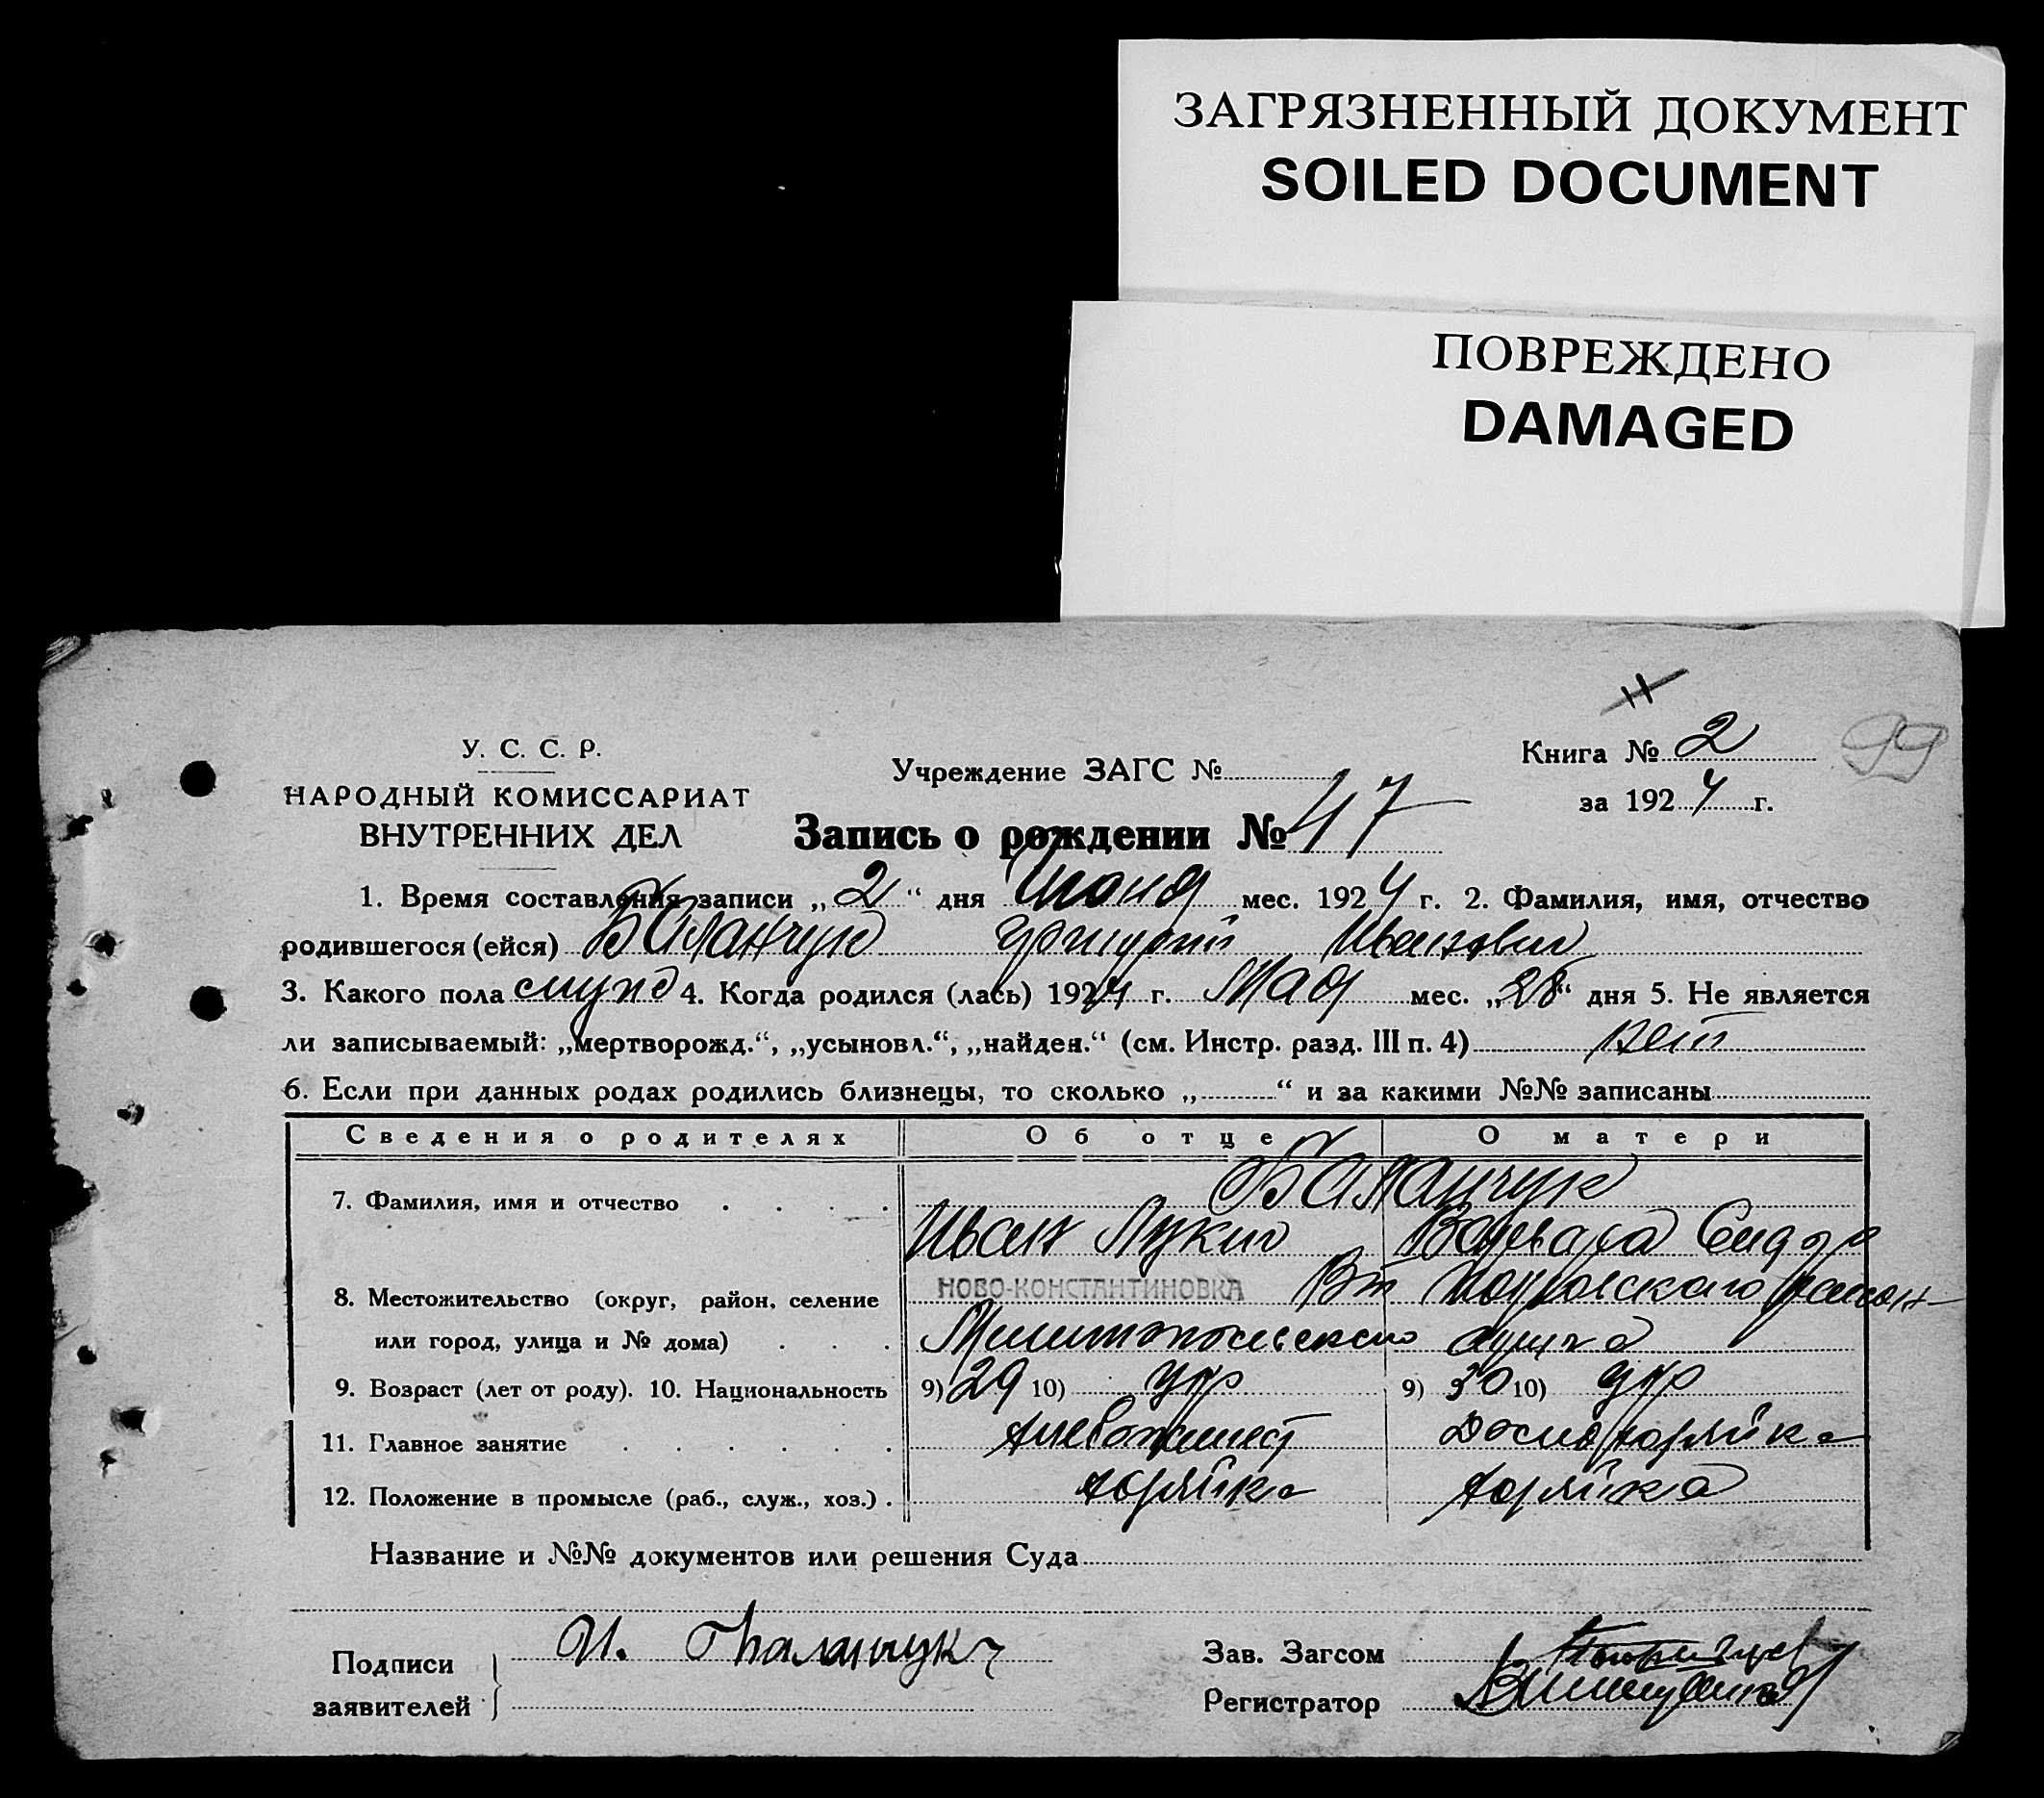 ЗАГРЯЗНЕННЫЙ ДОКУМЕНТ
SOILED DOCUMENT
ПОВРЕЖДЕНО
DAMAGED
99
У. С. С. Р.
НАРОДНЫЙ КОМИССАРИАТ
ВНУТРЕННИХ ДЕЛ
Учреждение ЗАГС №
Книга № 2
за 1924 г.
Запись о рождении № 47
1. Время составления записи „2“ дня Июня мес. 1924 г. 2. Фамилия, имя, отчество
родившегося (ейся) Баланчук Григорий Иванович
3. Какого пола 4. Когда родился (лась) 1924 г. Мая мес. „28“ дня 5. Не является
ли записываемый: „мертворожд.“, „усыновл.“, „найден.“ (см. Инстр. разд. III п. 4) нет
6. Если при данных родах родились близнецы, то сколько „ “ и за какими №№ записаны
Сведения о родителях Об отце О матери
Баланчук
7. Фамилия, имя и отчество
Иван Лукич Варвара Сидор
8. Местожительство (округ, район, селение НОВО-КОНСТАНТИНОВКА Покровского район
или город, улица и № дома) Мелитопольского округа
9. Возраст (лет от роду). 10. Национальность 9) 29 10) укр 9) 30 10) укр
11. Главное занятие
12. Положение в промысле (раб., служ., хоз.)
Название и №№ документов или решения Суда
Подписи заявителей И. Баланчук
Зав. Загсом
Регистратор